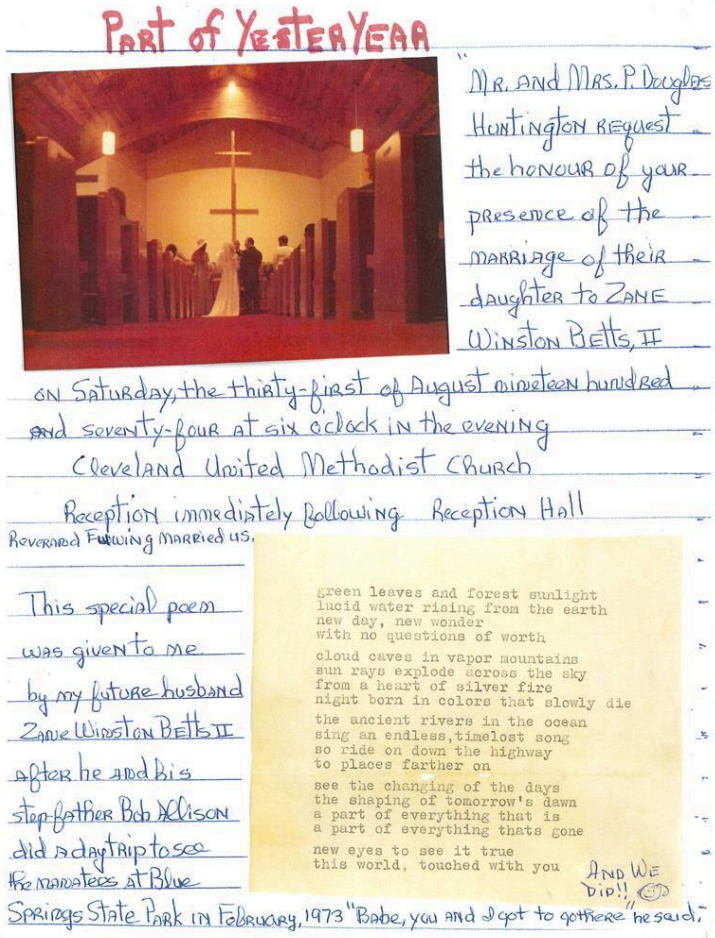 Part of YesterYear
"Mr. and Mrs. P. Douglas
Huntington request
the honour of your
presence of the
marriage of their
daughter to Zane
Winston Betts, II
on Saturday, the thirty-first of August nineteen hundred
and seventy-four at six o'clock in the evening
Cleveland United Methodist Church
Reception immediately following Reception Hall
Reverand Ewing married us.
This special poem
was given to me
by my future husband
Zane Winston Betts II
After he and his
step-father Bob Allison
did a daytrip to see
the manatees at Blue
Springs State Park in February, 1973 "Babe, you and I got to go there" he said.
green leaves and forest sunlight
lucid water rising from the earth
new day, new wonder
with no questions of worth
cloud caves in vapor mountains
sun rays explode across the sky
from a heart of silver fire
night born in colors that slowly die
the ancient rivers in the ocean
sing an endless,timelost song
so ride on down the highway
to places farther on
see the changing of the days
the shaping of tomorrow's dawn
a part of everything that is
a part of everything thats gone
new eyes to see it true
this world, touched with you
And We
Did!!